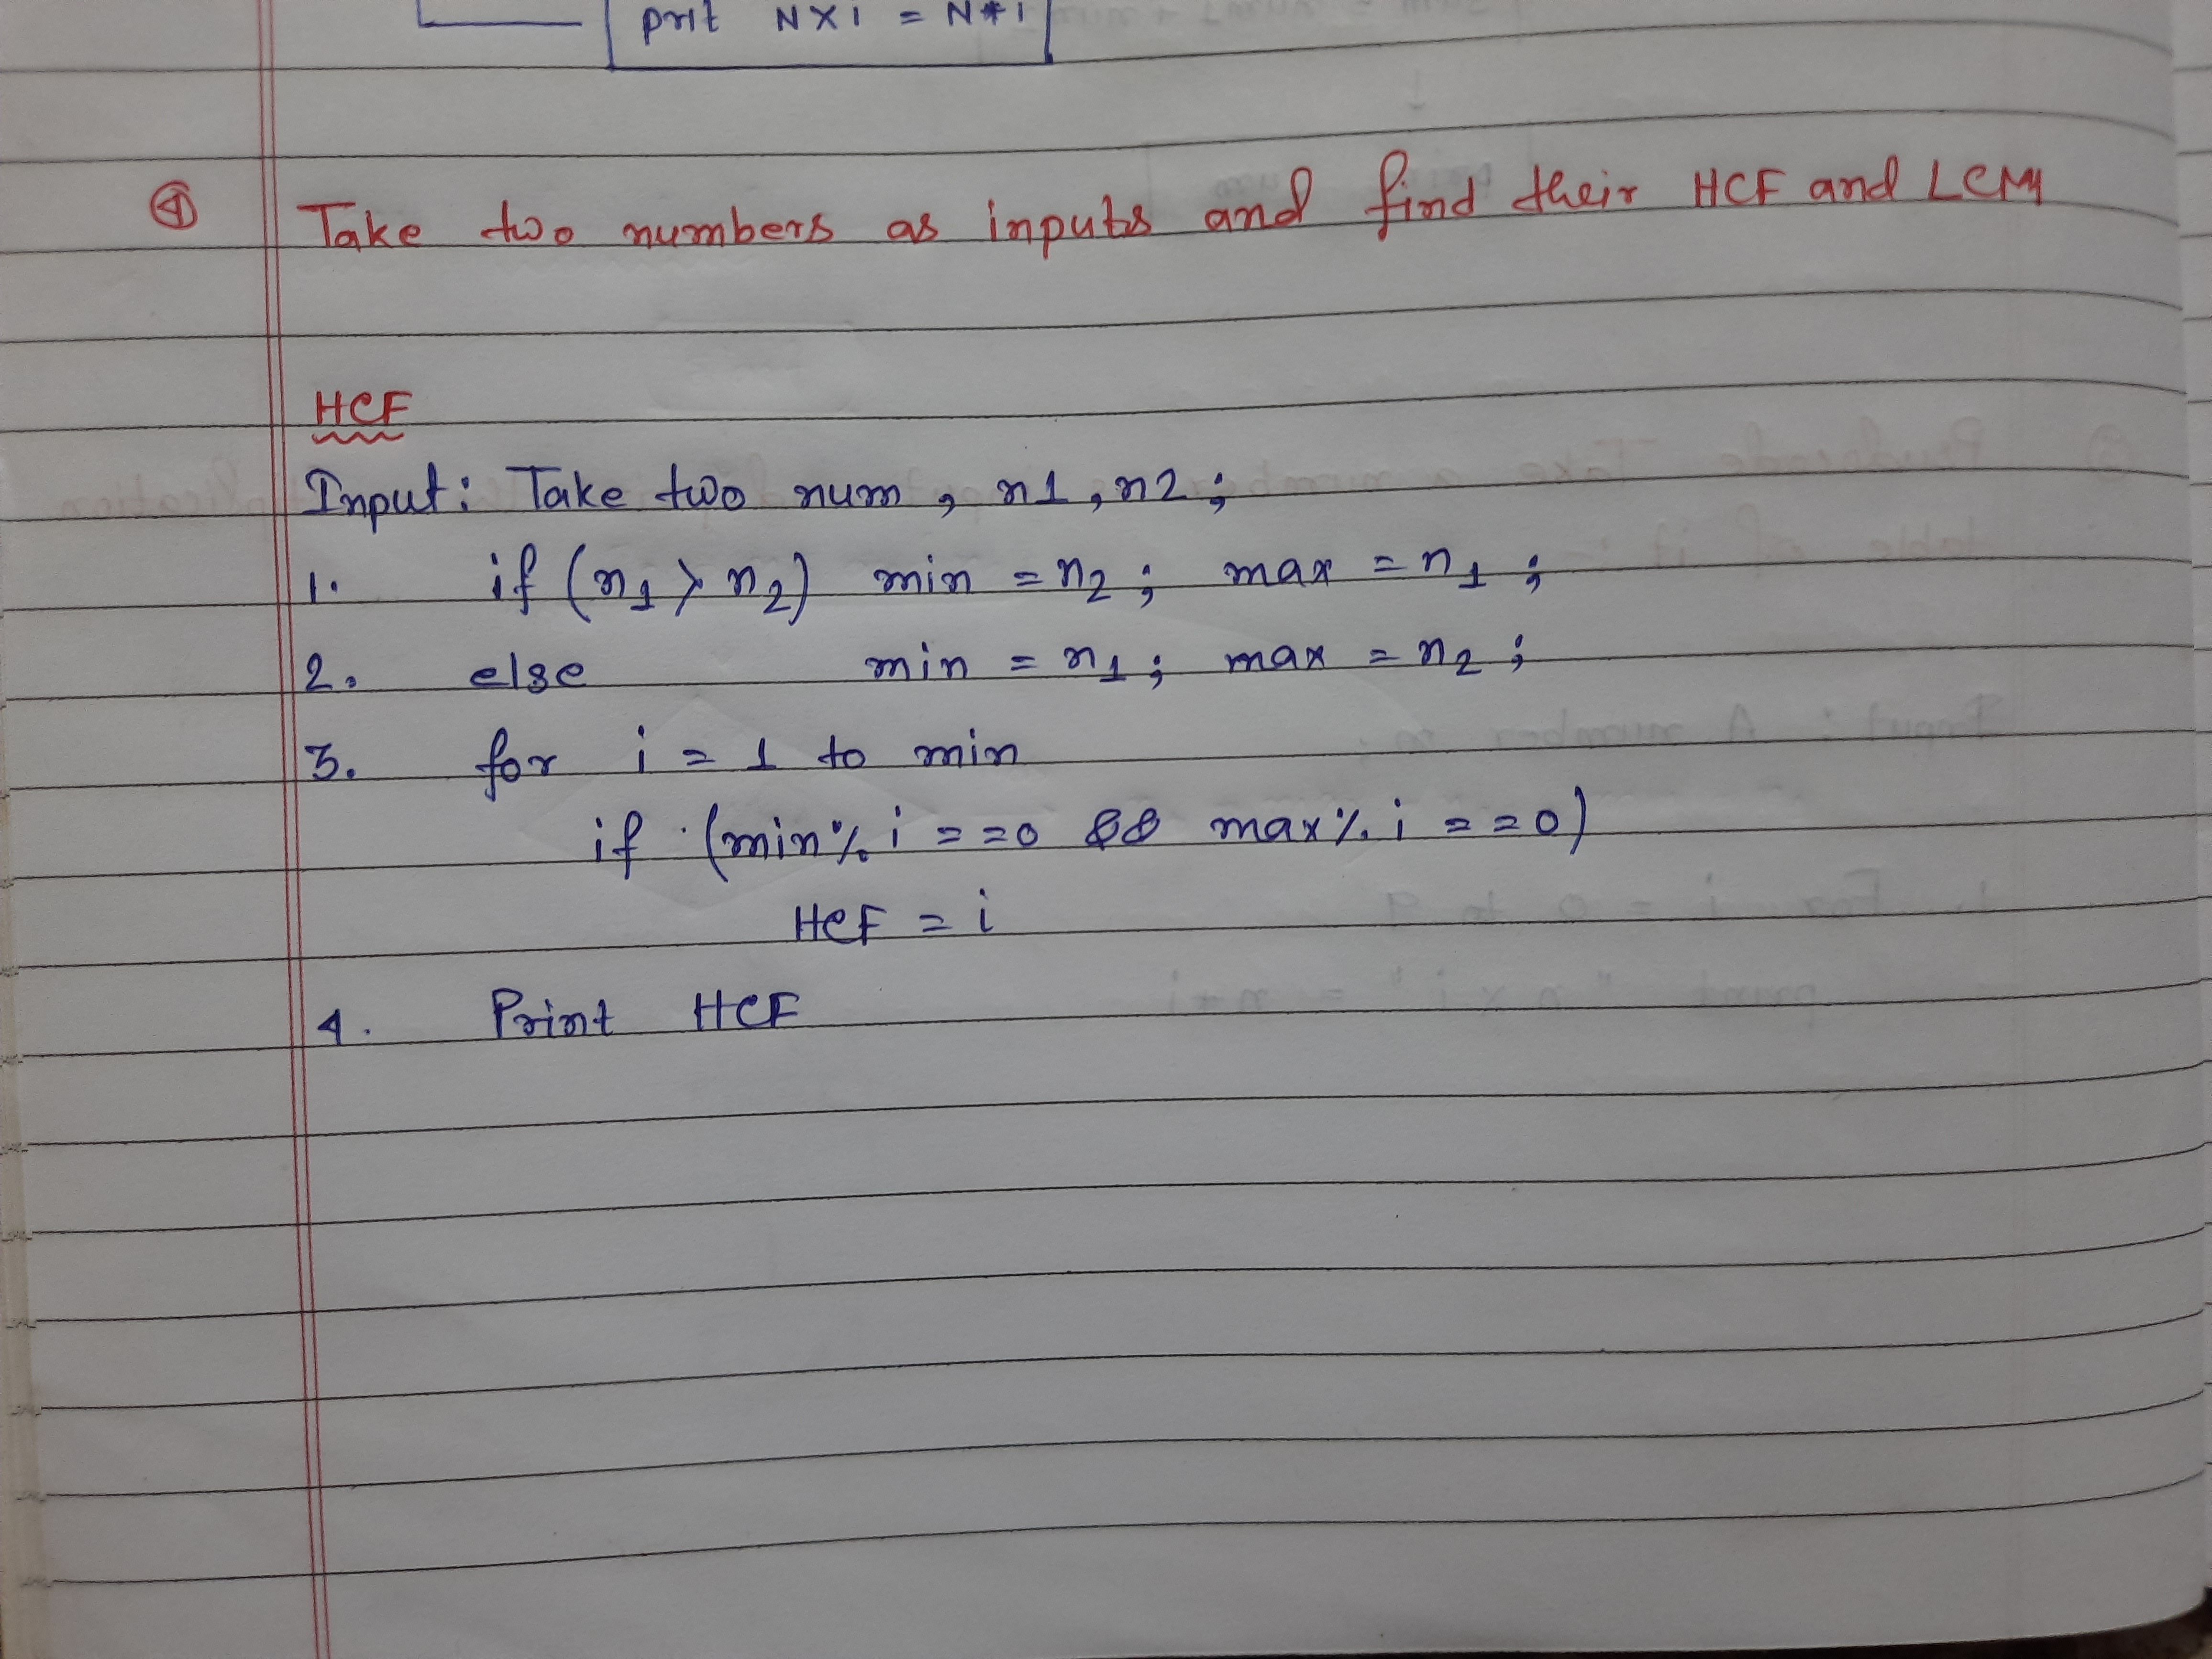 prit N X i = N * i
④ Take two numbers as inputs and find their HCF and LCM
HCF
Input: Take two num, n1, n2;
1. if (n1 > n2) min = n2; max = n1;
2. else min = n1; max = n2;
3. for i = 1 to min
if (min % i == 0 && max % i == 0)
HCF = i
4. Print HCF